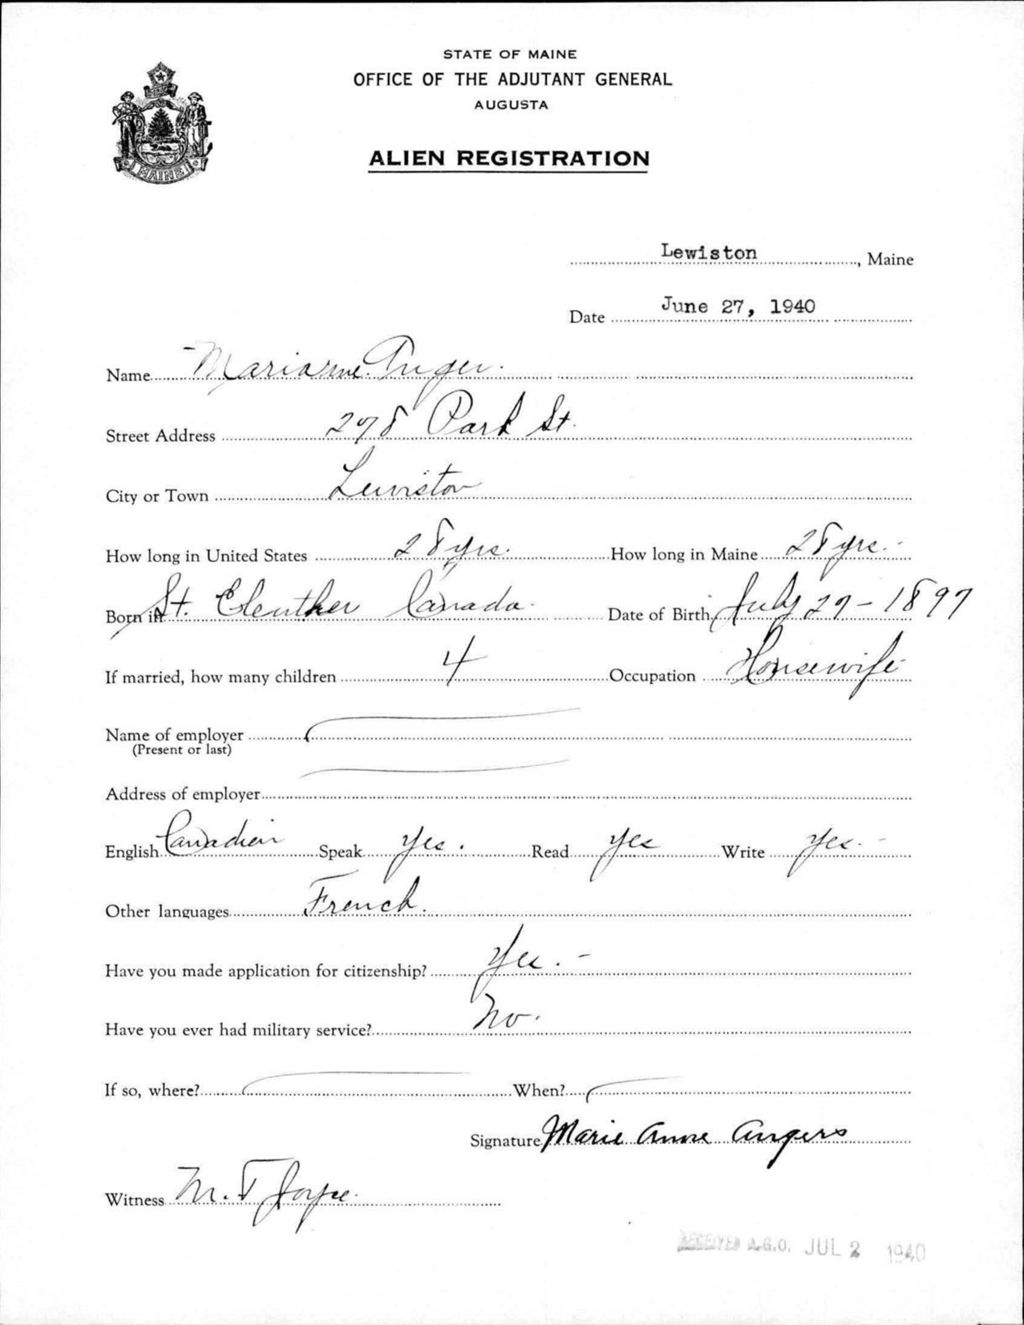 STATE OF MAINE
OFFICE OF THE ADJUTANT GENERAL
AUGUSTA
ALIEN REGISTRATION
MAINE
Lewiston, Maine
Date June 27, 1940
Name Marianne Anger.
Street Address 278 Park St.
City or Town Lewiston
How long in United States 28 yrs. How long in Maine 28 yrs.-
Born in St. Eleuther Canada- Date of Birth July 27-1897
If married, how many children 4 Occupation Housewife-
Name of employer
(Present or last)
Address of employer
English Canadien Speak Yes. Read Yes Write Yes.-
Other languages French.
Have you made application for citizenship? Yes.-
Have you ever had military service? No.
If so, where? When?
Signature Marie Anne Angers
Witness M. T Joyce.
RECEIVED A.G.O. JUL 2 1940